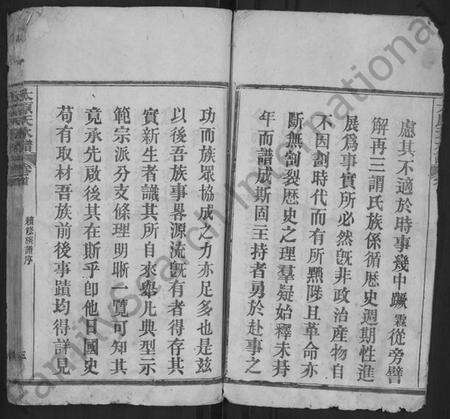 慮其不適於時事幾中蹶霖從旁譬
解再三謂氏族係循歷史週期性進
展爲事實所必然旣非政治產物自
不因劃時代而有所黜陟且革命亦
斷無割裂歷史之理羣疑始釋未朞
年而譜成斯固主持者勇於赴事之
功而族眾協成之力亦足多也是兹
以後吾族事畧源流旣有者得存其
實新生者識其所自來舉凡典型示
範宗派分支條理明晰一覽可知其
竟承先啟後其在斯乎卽他日國史
苟有取材吾族前後事蹟均得詳見
FamilySearch International